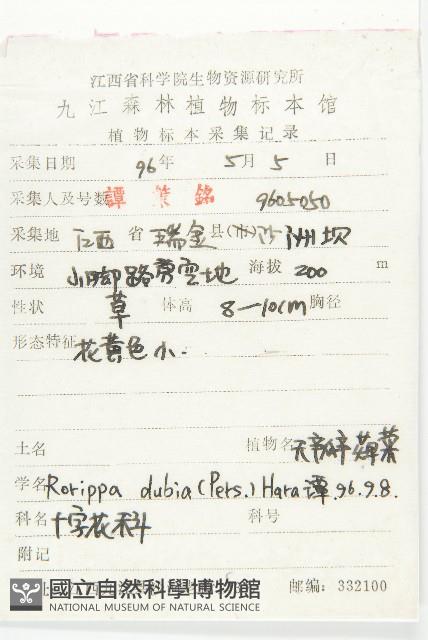 江西省科学院生物资源研究所
九江森林植物标本馆
植物标本采集记录
采集日期 96年 5月 5 日
采集人及号数 譚策銘 9605050
采集地 江西 省 瑞金 县(市)沙洲坝
环境 山脚路旁空地 海拔 200 m
性状 草 体高 8—10cm 胸径
形态特征 花黄色小.
土名 植物名 无瓣蔊菜
学名 Rorippa dubia (Pers.) Hara 譚 96.9.8.
科名 十字花科 科号
附记
邮编: 332100
國立自然科學博物館
NATIONAL MUSEUM OF NATURAL SCIENCE